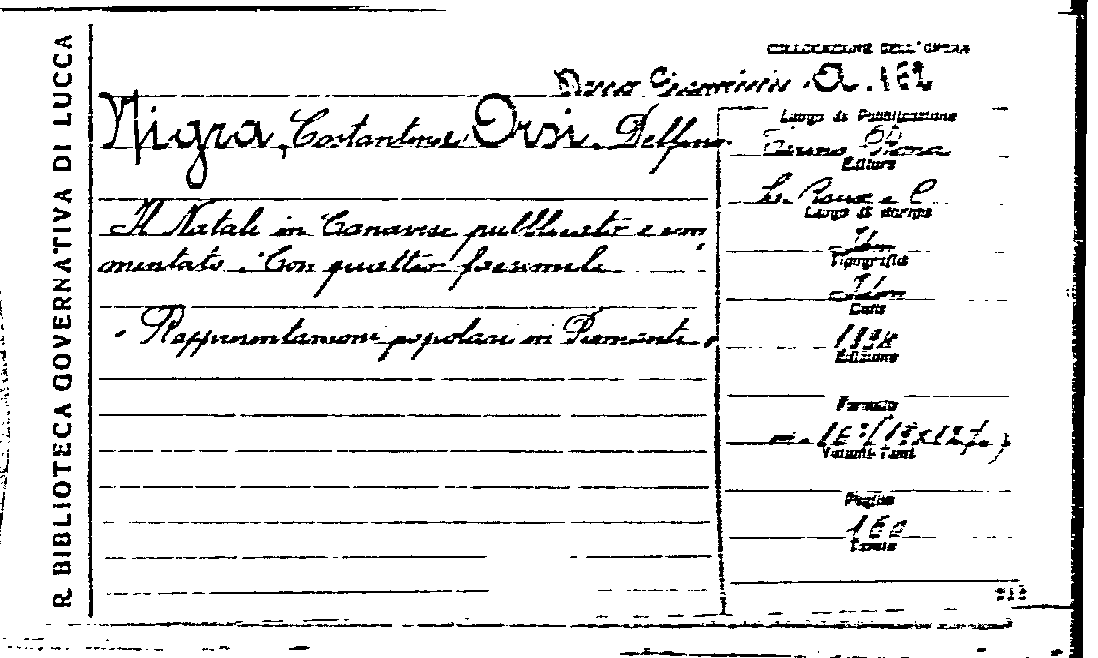 R. BIBLIOTECA GOVERNATIVA DI LUCCA
COLLOCAZIONE DELL'OPERA
A. 162
Nigra, Costantino e Orsi, Delfino
Il Natale in Canavese pubblicato e com
mentato. Con quattro facsimile
- Rappresentazioni popolari in Piemonte
Luogo di Pubblicazione
Torino Roma
Editore
L. Roux e C
Luogo di stampa
Idem
Tipografia
Idem
Data
Edizione
Formato
Volumi-Tomi
Pagine
Tavole